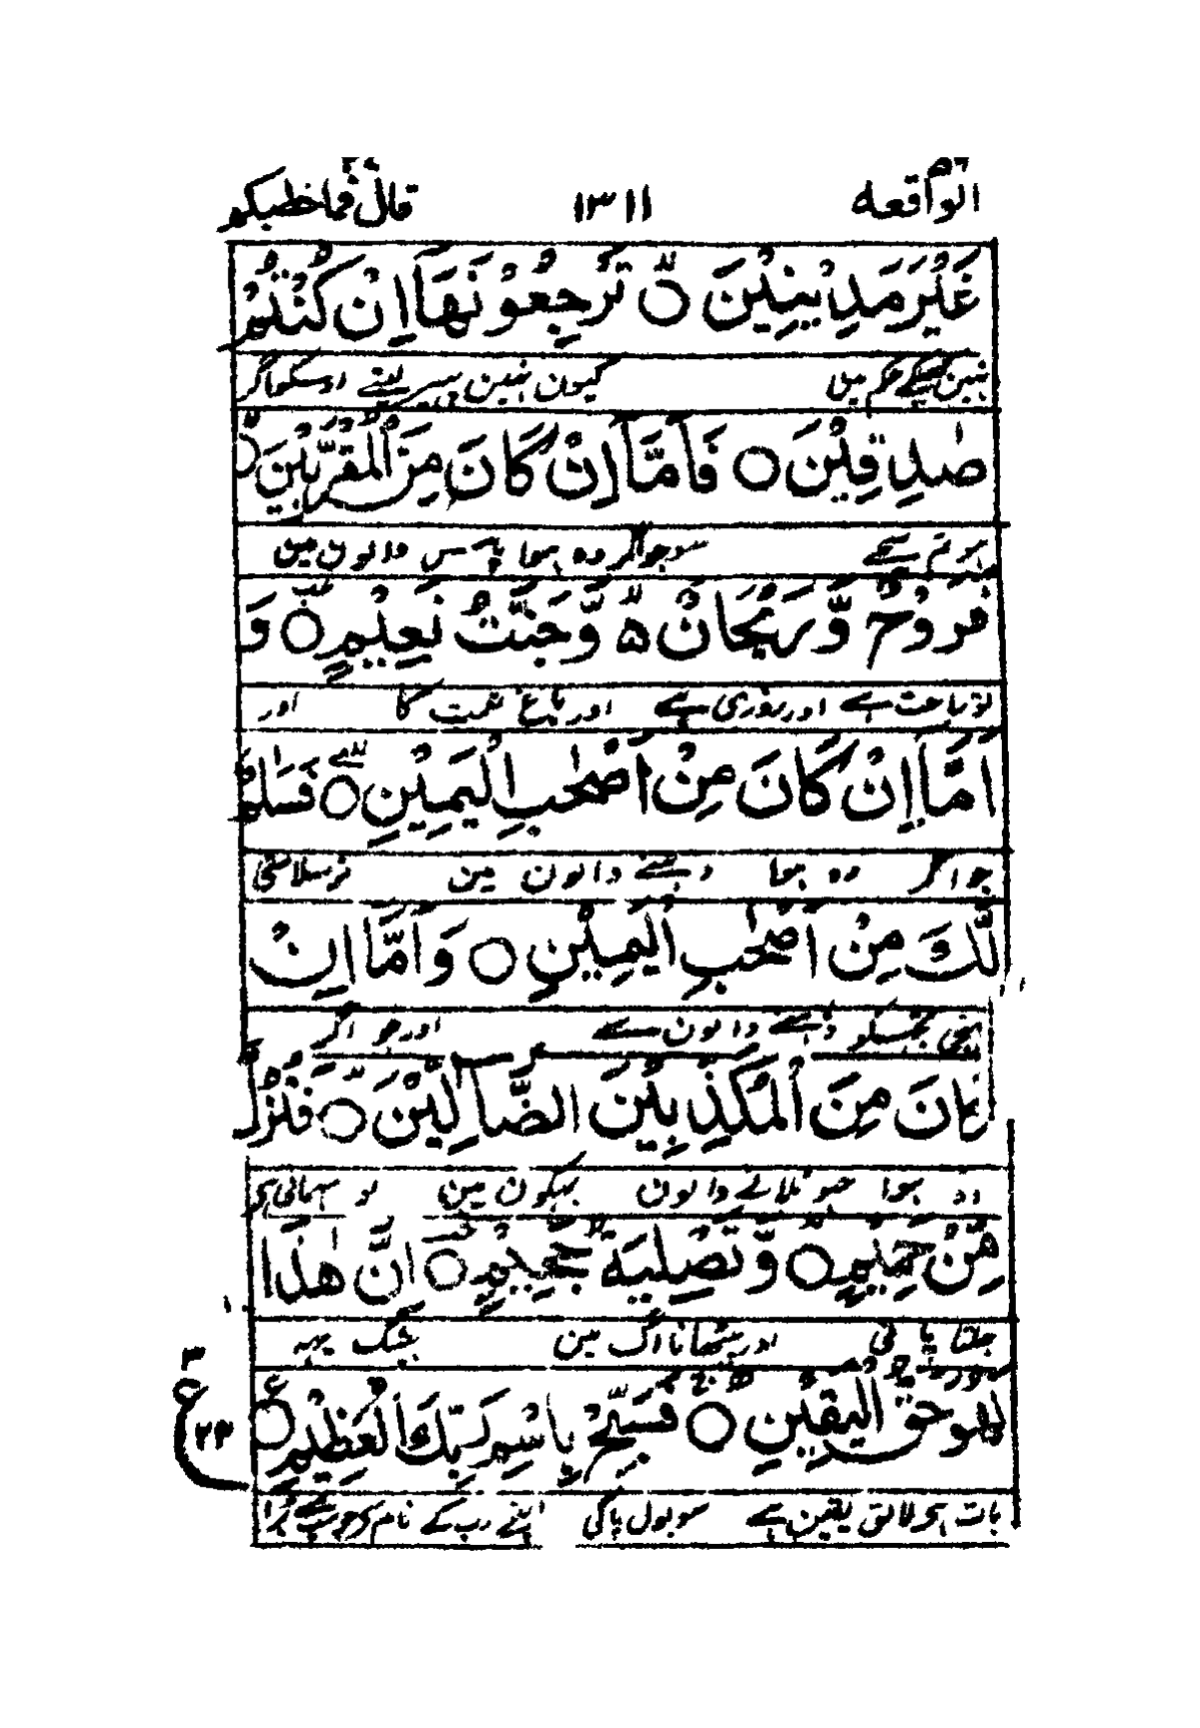 الواقعه ٥٦ ١٣١١ قال فما خطبكم ٢٧
غَيْرَ مَدِيْنِيْنَ ۝ تَرْجِعُوْنَهَاۤ اِنْ كُنْتُمْ
نہین کسیکے حکم مین کیون نہین پہیر لیتے اوسکو اگر
صٰدِقِيْنَ ۝ فَاَمَّاۤ اِنْ كَانَ مِنَ الْمُقَرَّبِيْنَ ۝
ہو تم سچے سو جو اگر وہ ہوا پاس والون مین
فَرَوْحٌ وَّرَيْحَانٌ ۙ وَّجَنَّتُ نَعِيْمٍ ۝ وَ
تو راحت ہے اور روزی ہے اور باغ نعمت کا اور
اَمَّاۤ اِنْ كَانَ مِنْ اَصْحٰبِ الْيَمِيْنِ ۝ فَسَلٰمٌ
جو اگر وہ ہوا دہنے والون مین تو سلامتی
لَّكَ مِنْ اَصْحٰبِ الْيَمِيْنِ ۝ وَاَمَّاۤ اِنْ
پہنچی تجہکو دہنے والون سے اور جو اگر
كَانَ مِنَ الْمُكَذِّبِيْنَ الضَّآلِّيْنَ ۝ فَنُزُلٌ
وہ ہوا جہٹلانے والون بہکون مین تو مہمانی ہی
مِّنْ حَمِيْمٍ ۝ وَّتَصْلِيَةُ جَحِيْمٍ ۝ اِنَّ هٰذَا
جلتا پانی اور بیٹھانا آگ مین بیشک یہہ
لَهُوَ حَقُّ الْيَقِيْنِ ۝ فَسَبِّحْ بِاسْمِ رَبِّكَ الْعَظِيْمِ ۝
٣ ع ٢٢
بات ہی لائق یقین ہے سو بول پاکی اپنے رب کے نام کی جو سب سے بڑا